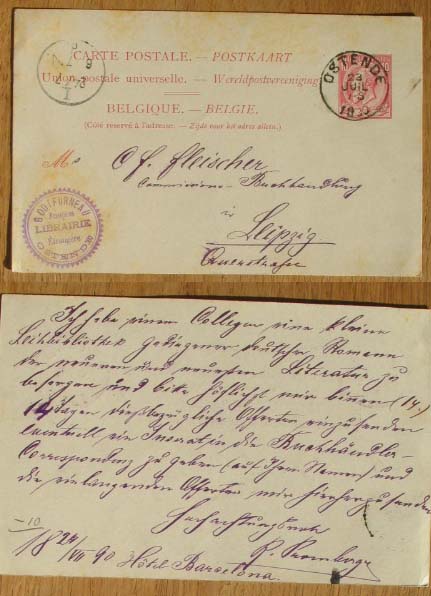 CARTE POSTALE. — POSTKAART
Union postale universelle. — Wereldpostvereeniging
BELGIQUE. — BELGIE.
(Côté reservé à l'adresse. — Zijde voor het adres alleen.)
OSTENDE
23
JUIL
M. C. f. fleischer
Commissions-Buchhandlung
in
Leipzig
Querstrasse
LIBRAIRIE
Etrangère
OSTENDE
Ich habe einen Collegen eine kleine
Leihbibliothek gediegener deutscher Romane
der neueren und neuesten Literatur zu
besorgen und bitte höflichst mir binnen (14.)
14 Tagen diesbezügliche Offerten einzusenden
eventuell ein Inserat in die Buchhändler-
Correspondenz zu geben (auf Ihren Namen) und
die einlangenden Offerten mir hierherzusenden
Hochachtungsvoll
R.
-10
18 24/VII 90 Hôtel Barcelona.